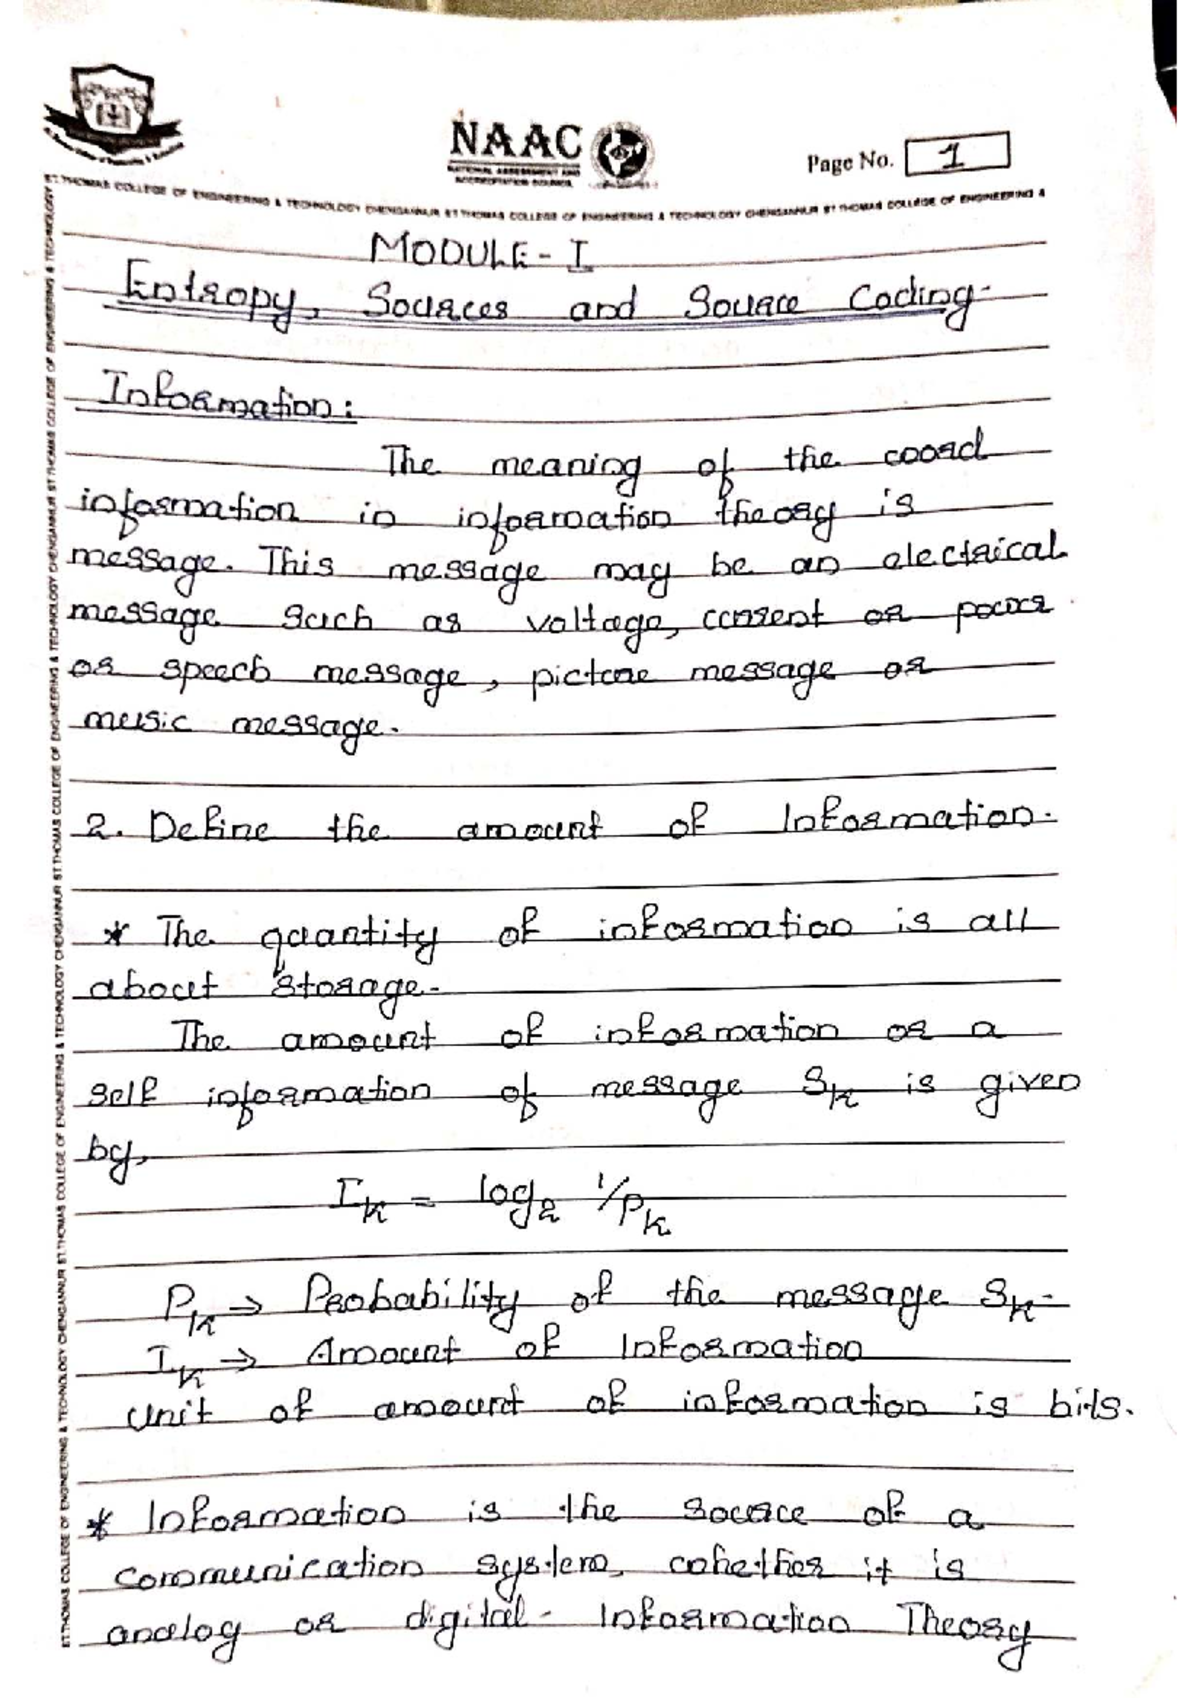 NAAC
NATIONAL ASSESSMENT AND
ACCREDITATION COUNCIL
Page No. 1
ST.THOMAS COLLEGE OF ENGINEERING & TECHNOLOGY CHENGANNUR ST THOMAS COLLEGE OF ENGINEERING & TECHNOLOGY CHENGANNUR ST THOMAS COLLEGE OF ENGINEERING &
MODULE - I
Entropy, Sources and Source Coding.
Information:
The meaning of the word
information in information theory is
message. This message may be an electrical
message such as voltage, current or power
or speech message, picture message or
music message.
2. Define the amount of Information.
* The quantity of information is all
about storage.
The amount of information or a
self information of message Sk is given
by,
Ik = log2 1/Pk
Pk → Probability of the message Sk.
Ik → Amount of Information
Unit of amount of information is bits.
* Information is the source of a
communication system, whether it is
analog or digital. Information Theory